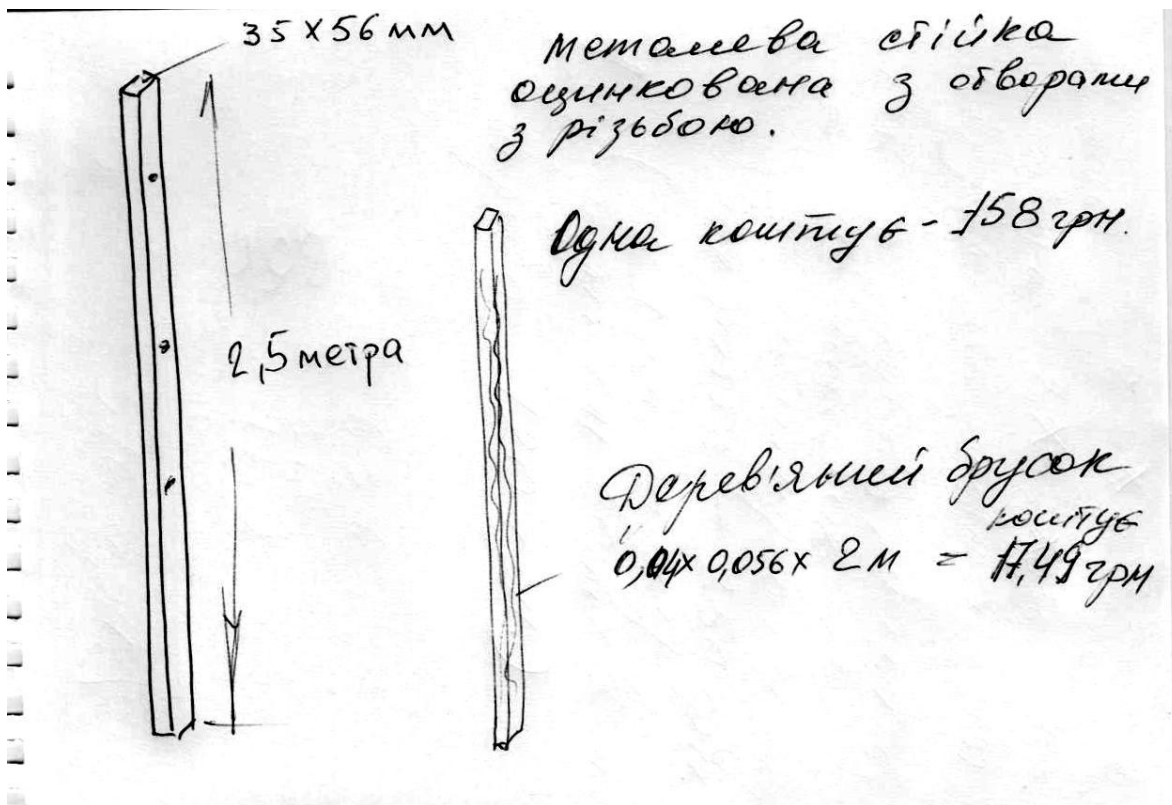 35 х 56 мм
металева стійка
оцинкована з отворами
з різьбою.
Одна коштує - 158 грн.
2,5 метра
Дерев'яний брусок
коштує
0,04х 0,056 х 2 м = 17,49 грн